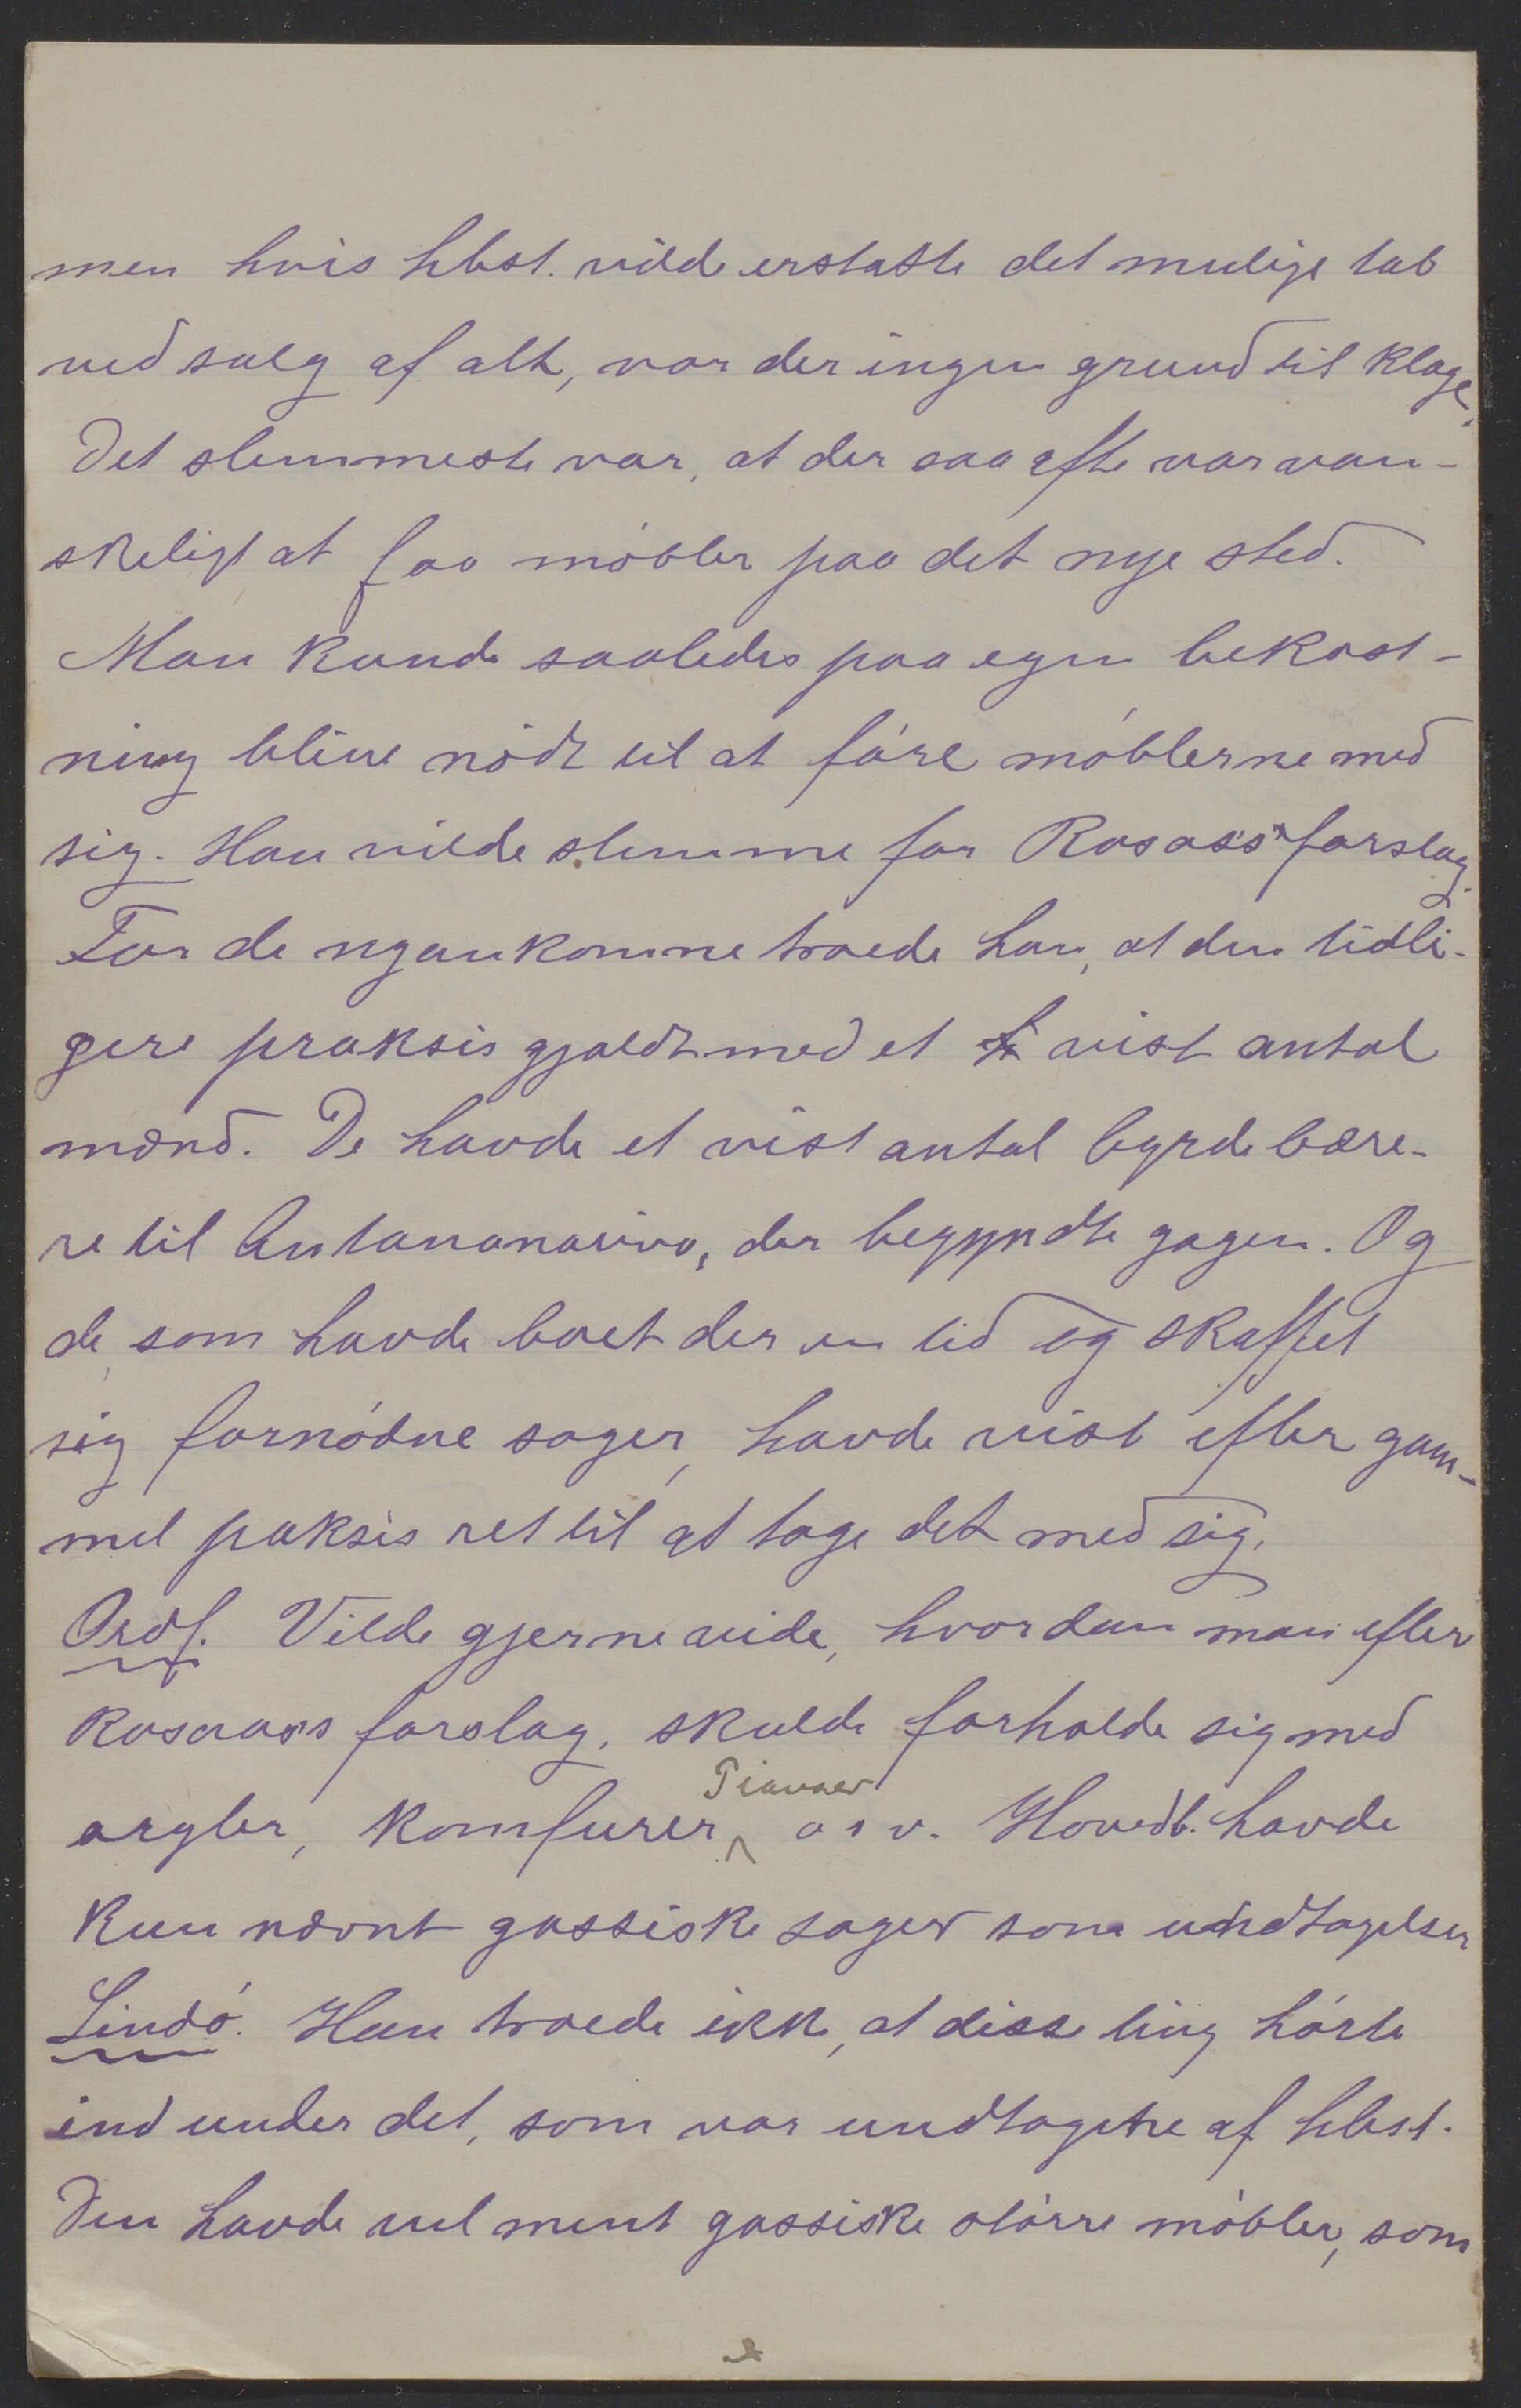 men hvis hbst. vilde erstatte det mulige tab
ved salg af alt, var der ingen grund til klage.
Det slemmeste var, at der saa ofte var van-
skeligt at faa møbler paa det nye sted.
Man kunde saaledes paa egen bekost-
ning blive nødt til at føre møblerne med
sig. Han vilde stemme for Rosaas's forslag.
For de nyankomne troede han, at den tidli-
gere praksis gjældt med et vist antal
mænd. De havde et vist antal byrdebære-
re til Antananarivo, der begyndte gagen. Og
de som havde boet der en tid og skaffet
sig fornødne sager, havde vist efter gam-
mel paksis ret til at tage det med sig.
Ordf. Vilde gjerne vide, hvordan man efter
Rosaas's forslag, skulde forholde sig med
orgler, komfurer, Pianoer osv. Hovedb. havde
kun nævnt gassiske sager som undtagelser
Lindø. Han troede ikke, at disse ting hørte
ind under det, som var undtagne af hbst.
Den havde vel ment gassiske større møbler, som